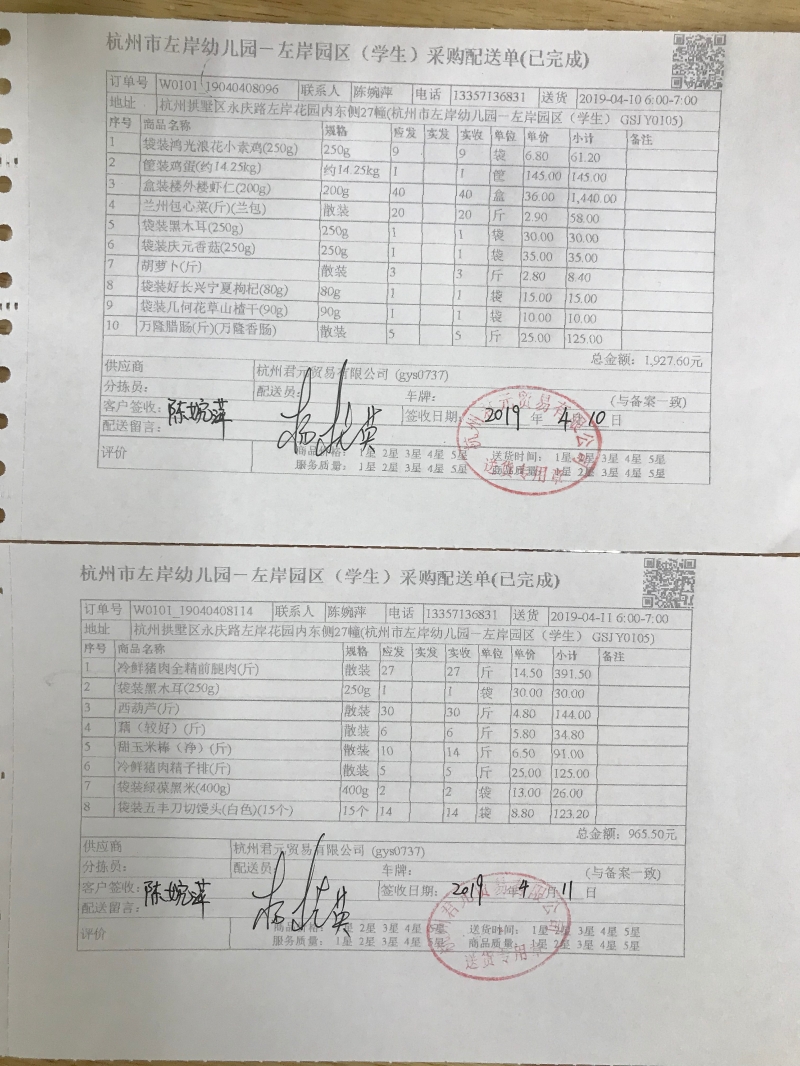 杭州市左岸幼儿园－左岸园区（学生）采购配送单(已完成)
订单号 W0101_19040408096 联系人 陈婉萍 电话 13357136831 送货 2019-04-10 6:00-7:00
地址 杭州拱墅区永庆路左岸花园内东侧27幢(杭州市左岸幼儿园－左岸园区（学生） GSJY0105)
序号 商品名称 规格 应发 实发 实收 单位 单价 小计 备注
1 袋装鸿光浪花小素鸡(250g) 250g 9 9 袋 6.80 61.20
2 筐装鸡蛋(约14.25kg) 约14.25kg 1 1 筐 145.00 145.00
3 盒装楼外楼虾仁(200g) 200g 40 40 盒 36.00 1,440.00
4 兰州包心菜(斤)(兰包) 散装 20 20 斤 2.90 58.00
5 袋装黑木耳(250g) 250g 1 1 袋 30.00 30.00
6 袋装庆元香菇(250g) 250g 1 1 袋 35.00 35.00
7 胡萝卜(斤) 散装 3 3 斤 2.80 8.40
8 袋装好长兴宁夏枸杞(80g) 80g 1 1 袋 15.00 15.00
9 袋装几何花草山楂干(90g) 90g 1 1 袋 10.00 10.00
10 万隆腊肠(斤)(万隆香肠) 散装 5 5 斤 25.00 125.00
总金额：1,927.60元
供应商 杭州君元贸易有限公司 (gys0737)
分拣员： 配送员： 车牌： (与备案一致)
客户签收：陈婉萍 签收日期： 2019 年 4 月 10 日
配送留言：
评价 商品价格： 1星 2星 3星 4星 5星 送货时间： 1星 2星 3星 4星 5星
服务质量： 1星 2星 3星 4星 5星 商品质量： 1星 2星 3星 4星 5星
杭州君元贸易有限公司
送货专用章
杭州市左岸幼儿园－左岸园区（学生）采购配送单(已完成)
订单号 W0101_19040408114 联系人 陈婉萍 电话 13357136831 送货 2019-04-11 6:00-7:00
地址 杭州拱墅区永庆路左岸花园内东侧27幢(杭州市左岸幼儿园－左岸园区（学生） GSJY0105)
序号 商品名称 规格 应发 实发 实收 单位 单价 小计 备注
1 冷鲜猪肉全精前腿肉(斤) 散装 27 27 斤 14.50 391.50
2 袋装黑木耳(250g) 250g 1 1 袋 30.00 30.00
3 西葫芦(斤) 散装 30 30 斤 4.80 144.00
4 藕（较好）(斤) 散装 6 6 斤 5.80 34.80
5 甜玉米棒（净）(斤) 散装 10 14 斤 6.50 91.00
6 冷鲜猪肉精子排(斤) 散装 5 5 斤 25.00 125.00
7 袋装绿葆黑米(400g) 400g 2 2 袋 13.00 26.00
8 袋装五丰刀切馒头(白色)(15个) 15个 14 14 袋 8.80 123.20
总金额：965.50元
供应商 杭州君元贸易有限公司 (gys0737)
分拣员： 配送员： 车牌： (与备案一致)
客户签收：陈婉萍 签收日期： 2019 年 4 月 11 日
配送留言：
评价 商品价格： 1星 2星 3星 4星 5星 送货时间： 1星 2星 3星 4星 5星
服务质量： 1星 2星 3星 4星 5星 商品质量： 1星 2星 3星 4星 5星
杭州君元贸易有限公司
送货专用章